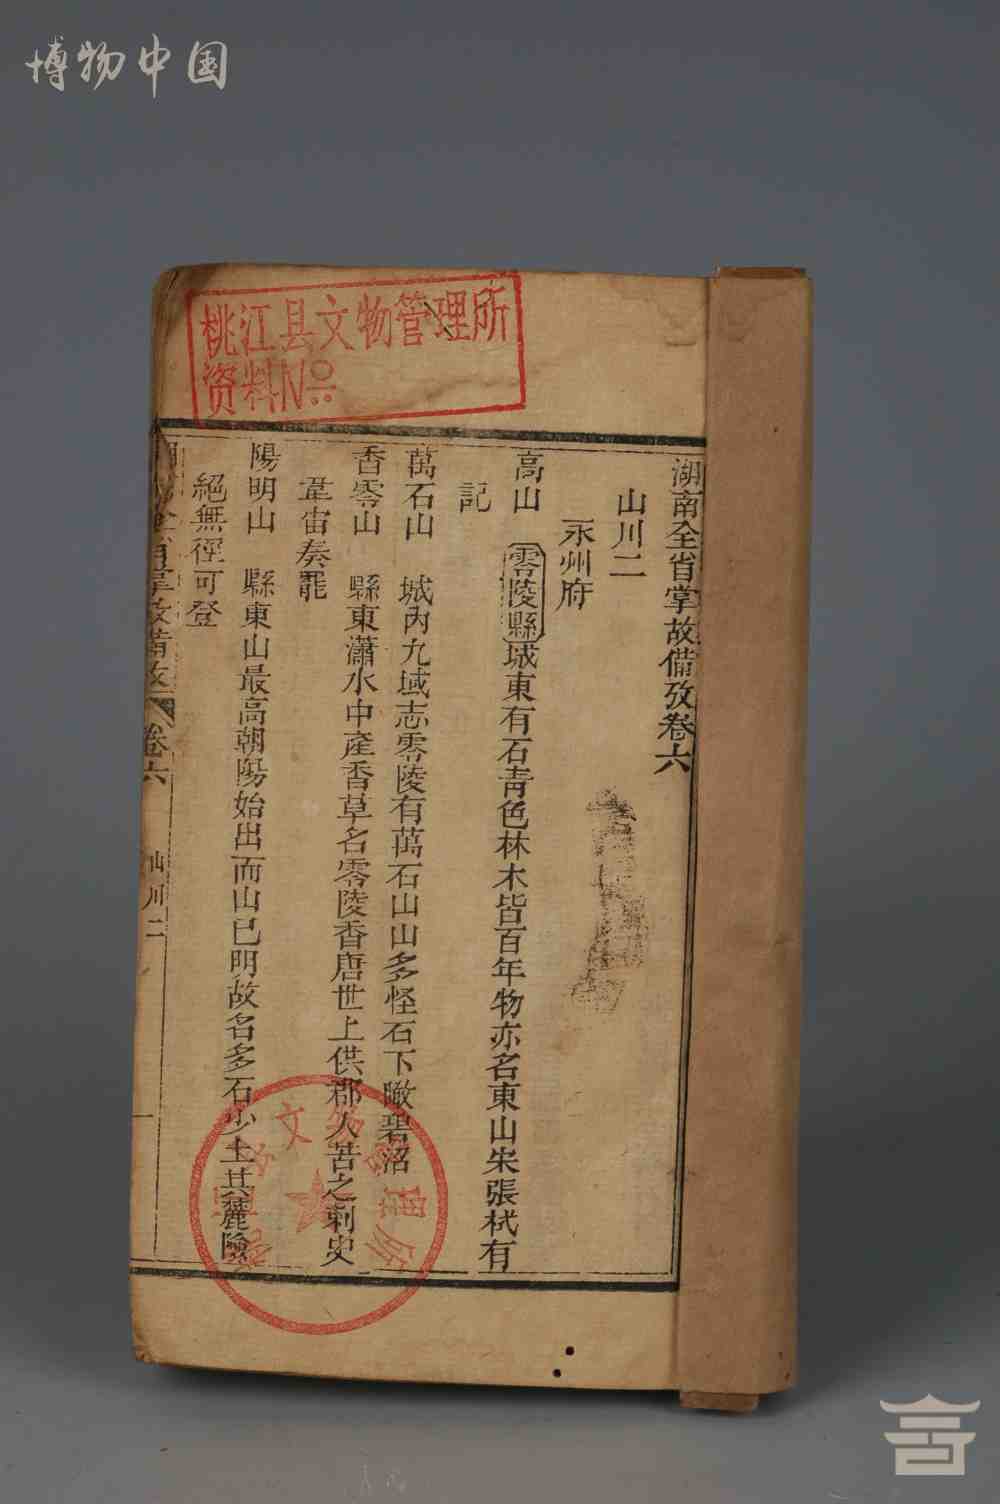 博物中国
桃江县文物管理所
资料No
湖南全省掌故備攷卷六
山川二
永州府
高山 零陵縣 城東有石靑色林木皆百年物亦名東山宋張栻有
記
萬石山 城內九域志零陵有萬石山山多怪石下瞰碧沼
香零山 縣東瀟水中產香草名零陵香唐世上供郡人苦之刺史
韋宙奏罷
陽明山 縣東山最高朝陽始出而山已明故名多石少土其麓險
絕無徑可登
卷六
山川二
一
文物管理所